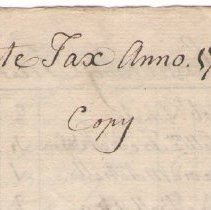 te Tax Anno.
Copy